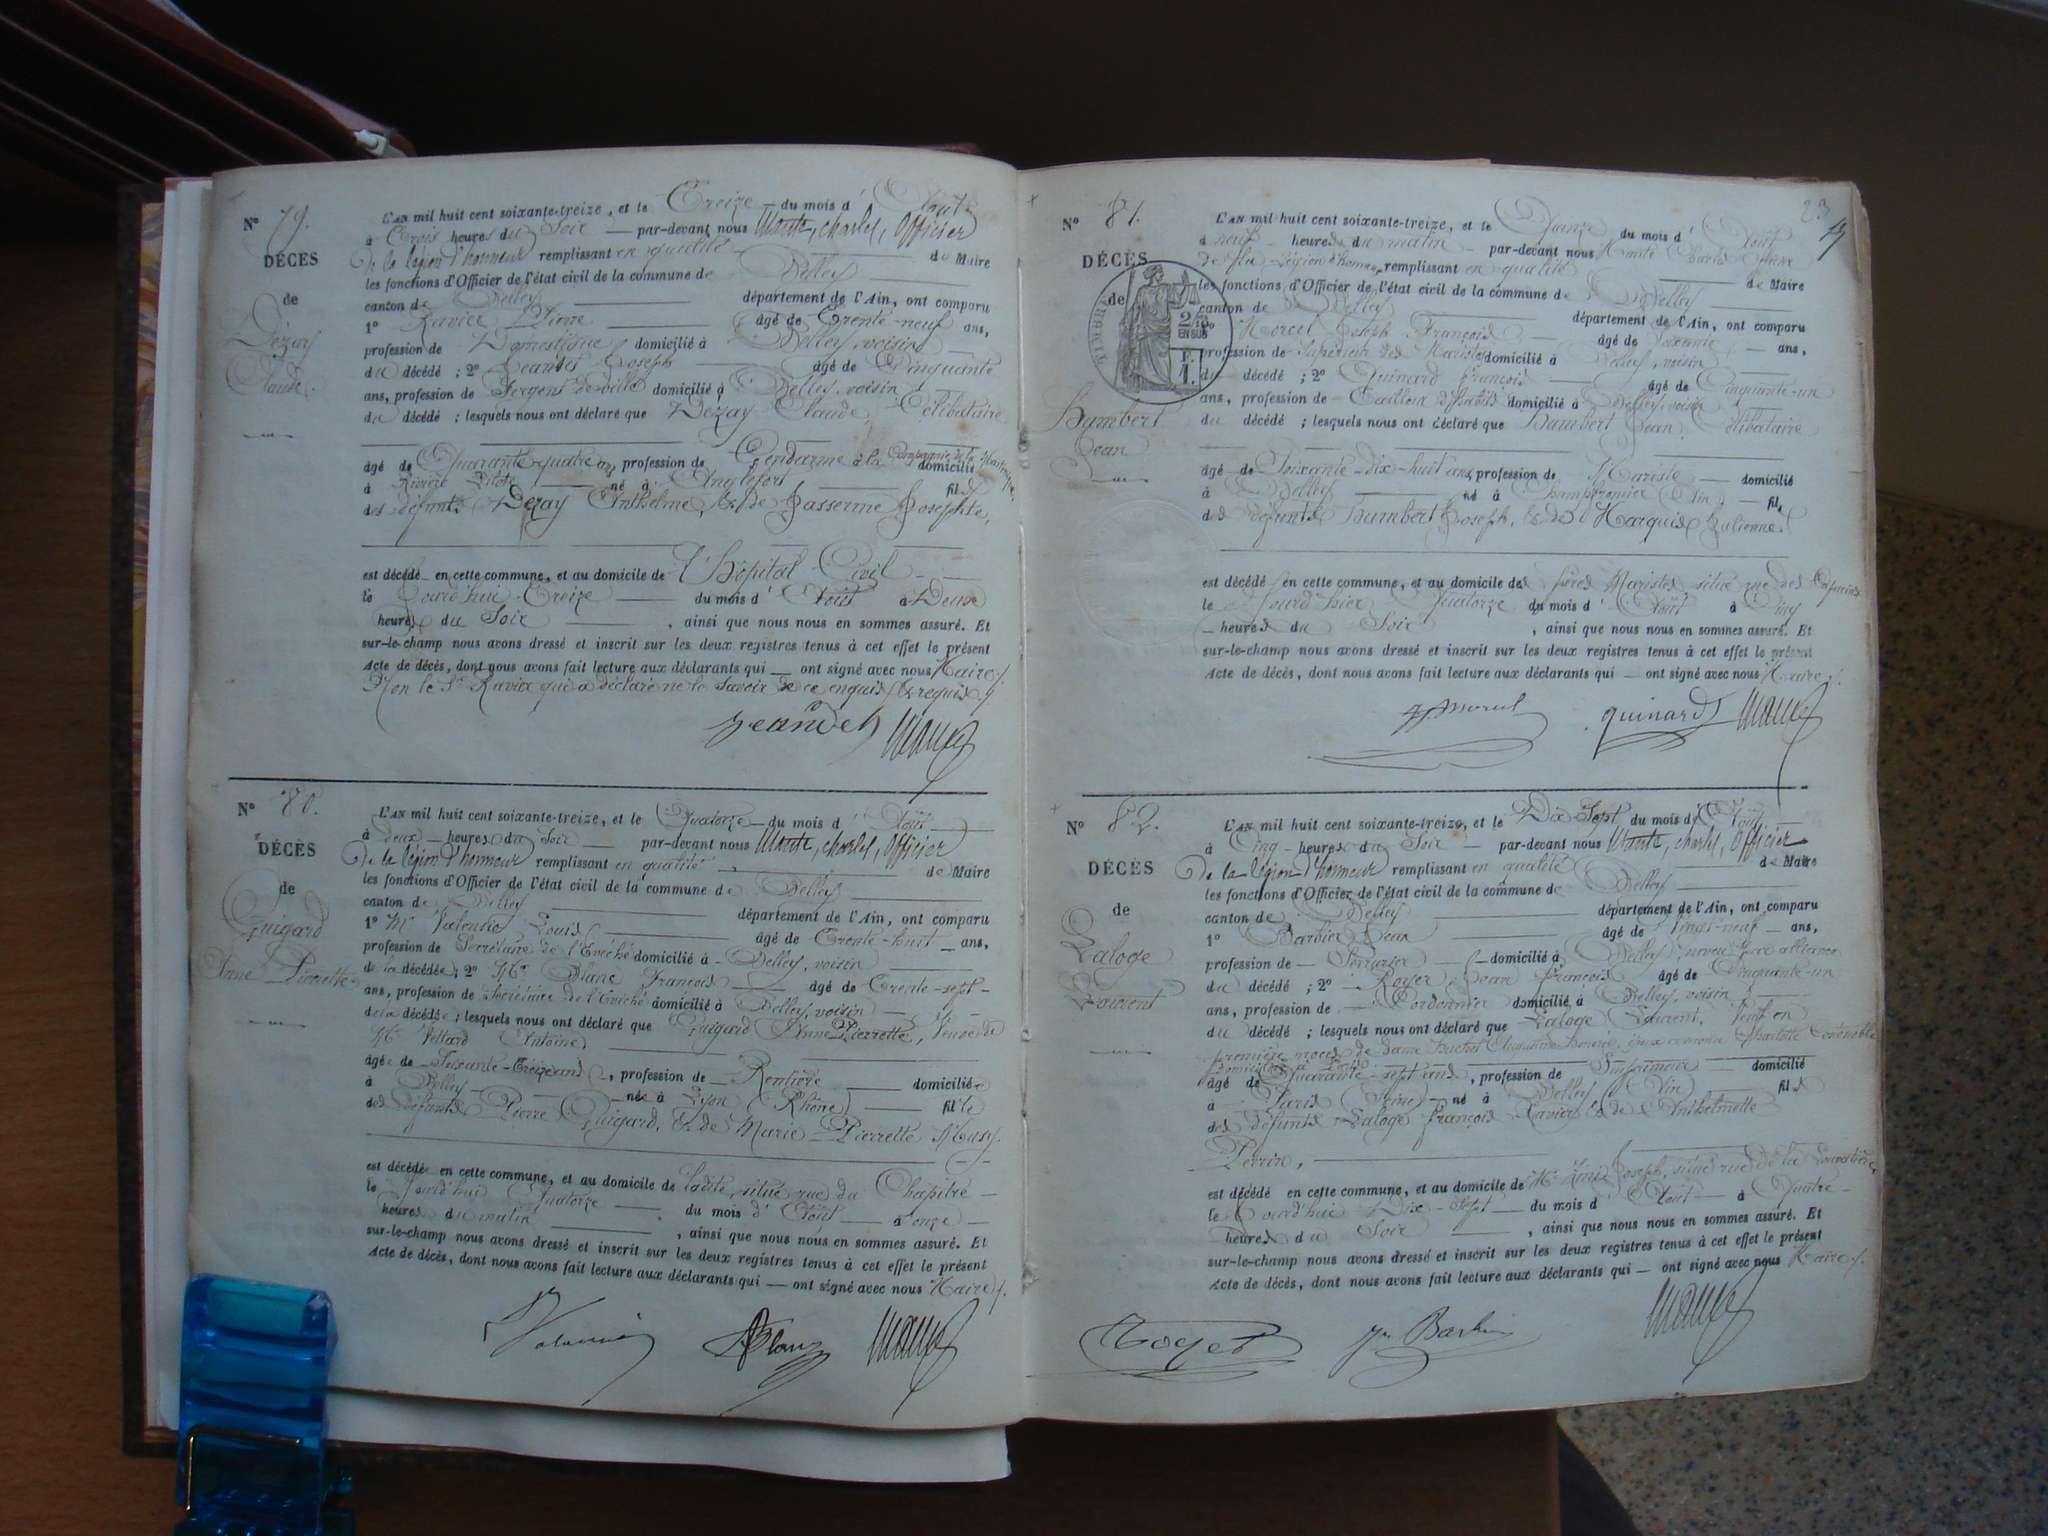 N° 79.
DÉCÈS
de
Dézay
Claude.
L'AN mil huit cent soixante-treize, et le Treize du mois d'Août
à Trois heures du Soir par-devant nous Monte, charles, officier
de la légion d'honneur remplissant en qualité de Maire
les fonctions d'Officier de l'état civil de la commune de Belley
canton de Belley département de l'Ain, ont comparu
1° Ravier Pierre âgé de Trente-neuf ans,
profession de Domestique domicilié à Belley, voisin
du décédé ; 2° Joseph âgé de Cinquante
ans, profession de Sergent de ville domicilié à Belley, voisin
du décédé ; lesquels nous ont déclaré que Dezay Claude, Célibataire
âgé de Quarante-quatre ans profession de Gendarme à la Compagnie de la domicilié
à Rivière Pilote né à Anglefort fils
des défunts Dezay Anthelme, & de Josephte,
est décédé en cette commune, et au domicile de l'hôpital Civil
le Jourd'hui Treize du mois d'Août à Deux
heures du Soir , ainsi que nous nous en sommes assuré. Et
sur-le-champ nous avons dressé et inscrit sur les deux registres tenus à cet effet le présent
Acte de décès, dont nous avons fait lecture aux déclarants qui ont signé avec nous Maire.
Non le Sr Ravier qui a déclaré ne le savoir de ce enquis & requis
N° 80.
DÉCÈS
de
Guigard
Anne Pierrette
L'AN mil huit cent soixante-treize, et le Quatorze du mois d'Août
à deux heures du Soir par-devant nous Monte, charles, officier
De la légion d'honneur remplissant en qualité de Maire
les fonctions d'Officier de l'état civil de la commune de Belley
canton de Belley département de l'Ain, ont comparu
1° Mr Louis âgé de Trente-huit ans,
profession de Secrétaire de l'Evêché domicilié à Belley, voisin
de la décédée ; 2° Mr Blanc François âgé de Trente-sept
ans, profession de Secrétaire de l'Evêché domicilié à Belley, voisin
de la décédée ; lesquels nous ont déclaré que Guigard Anne Pierrette, Veuve de
Mr Antoine
âgée de Soixante-Treize ans, profession de Rentière domiciliée
à Belley née à Lyon (Rhône) fille
des défunts Pierre Guigard, & de Marie Pierrette
est décédée en cette commune, et au domicile de ladite, situé rue du Chapitre
le Jourd'hui Quatorze du mois d'Août à onze
heures du matin , ainsi que nous nous en sommes assuré. Et
sur-le-champ nous avons dressé et inscrit sur les deux registres tenus à cet effet le présent
Acte de décès, dont nous avons fait lecture aux déclarants qui ont signé avec nous Maire.
Blanc
23
N° 81.
DÉCÈS
de
TIMBRE
2/10
EN SUS
F.
1.
Humbert
Jean
L'AN mil huit cent soixante-treize, et le Quinze du mois d'Août
à neuf heures du matin par-devant nous Monte Charles Officier
de la Légion d'honneur remplissant en qualité de Maire
les fonctions d'Officier de l'état civil de la commune de Belley
canton de Belley département de l'Ain, ont comparu
Morcel Joseph François âgé de Soixante ans,
profession de Supérieur des Maristes domicilié à Belley, voisin
du décédé ; 2° Quinard François âgé de Cinquante-un
ans, profession de Tailleur d'habits domicilié à Belley, voisin
du décédé ; lesquels nous ont déclaré que Humbert Jean, Célibataire
âgé de Soixante-dix-huit ans, profession de Mariste domicilié
à Belley né à Champfromier (Ain) fils
des défunts Humbert Joseph, & de Marquis Julienne
est décédé en cette commune, et au domicile des frères Maristes, situé rue des Capucins
le Jourd'hier Quatorze du mois d'Août à Cinq
heures du Soir , ainsi que nous nous en sommes assuré. Et
sur-le-champ nous avons dressé et inscrit sur les deux registres tenus à cet effet le présent
Acte de décès, dont nous avons fait lecture aux déclarants qui ont signé avec nous Maire.
quinard
N° 82.
DÉCÈS
de
Laloge
Laurent
L'AN mil huit cent soixante-treize, et le Dix-Sept du mois d'Août
à Cinq heures du Soir par-devant nous Monte, charles, officier
De la légion d'honneur remplissant en qualité de Maire
les fonctions d'Officier de l'état civil de la commune de Belley
canton de Belley département de l'Ain, ont comparu
1° Barbier Jean âgé de Vingt-neuf ans,
profession de Serrurier domicilié à Belley, neveu par alliance
du décédé ; 2° Royer Jean François âgé de Cinquante-un
ans, profession de Cordonnier domicilié à Belley, voisin
du décédé ; lesquels nous ont déclaré que Laloge Laurent, Veuf en
première noces de dame Augustine Honorine, Charlotte
âgé de Quarante-sept ans, profession de Imprimeur domicilié
à Paris (Seine) né à Belley (Ain) fils
des défunts Laloge François Xavier & de Anthelmette
Perrin,
est décédé en cette commune, et au domicile de Mr Joseph, situé rue de la
le Jourd'hui Dix-Sept du mois d'Août à Quatre
heures du Soir , ainsi que nous nous en sommes assuré. Et
sur-le-champ nous avons dressé et inscrit sur les deux registres tenus à cet effet le présent
Acte de décès, dont nous avons fait lecture aux déclarants qui ont signé avec nous Maire.
Royer